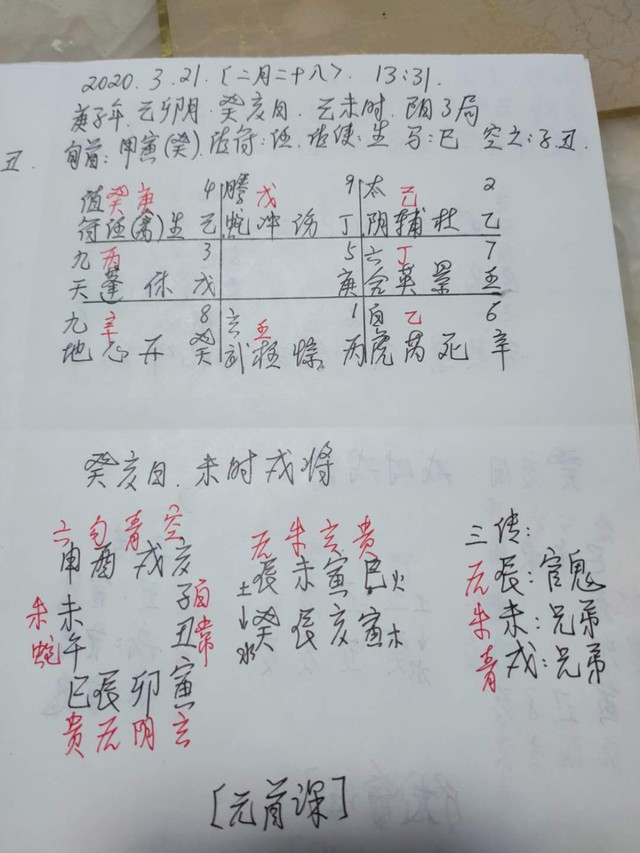 2020.3.21.(二月二十八). 13:31.
庚子年.己卯月.癸亥日.己未时.阴3局
旬首:甲寅(癸).值符:任.值使:生 马:巳 空亡:子丑.
丑.
值癸庚 4 腾戊 9 太己 2
符任(禽)生己 蛇冲伤丁 阴辅杜乙
九丙 3 5 六丁 7
天蓬休戊 庚 合英景壬
九辛 8 玄壬 1 白乙 6
地心开癸 武柱惊丙 虎芮死辛
癸亥日.未时戌将
六勾青空
申酉戌亥
朱未 子白
蛇午 丑常
巳辰卯寅
贵后阴玄
后朱玄贵
土辰未寅巳火
↓
水癸辰亥寅木
三传:
后辰:官鬼
朱未:兄弟
青戌:兄弟
[元首课]